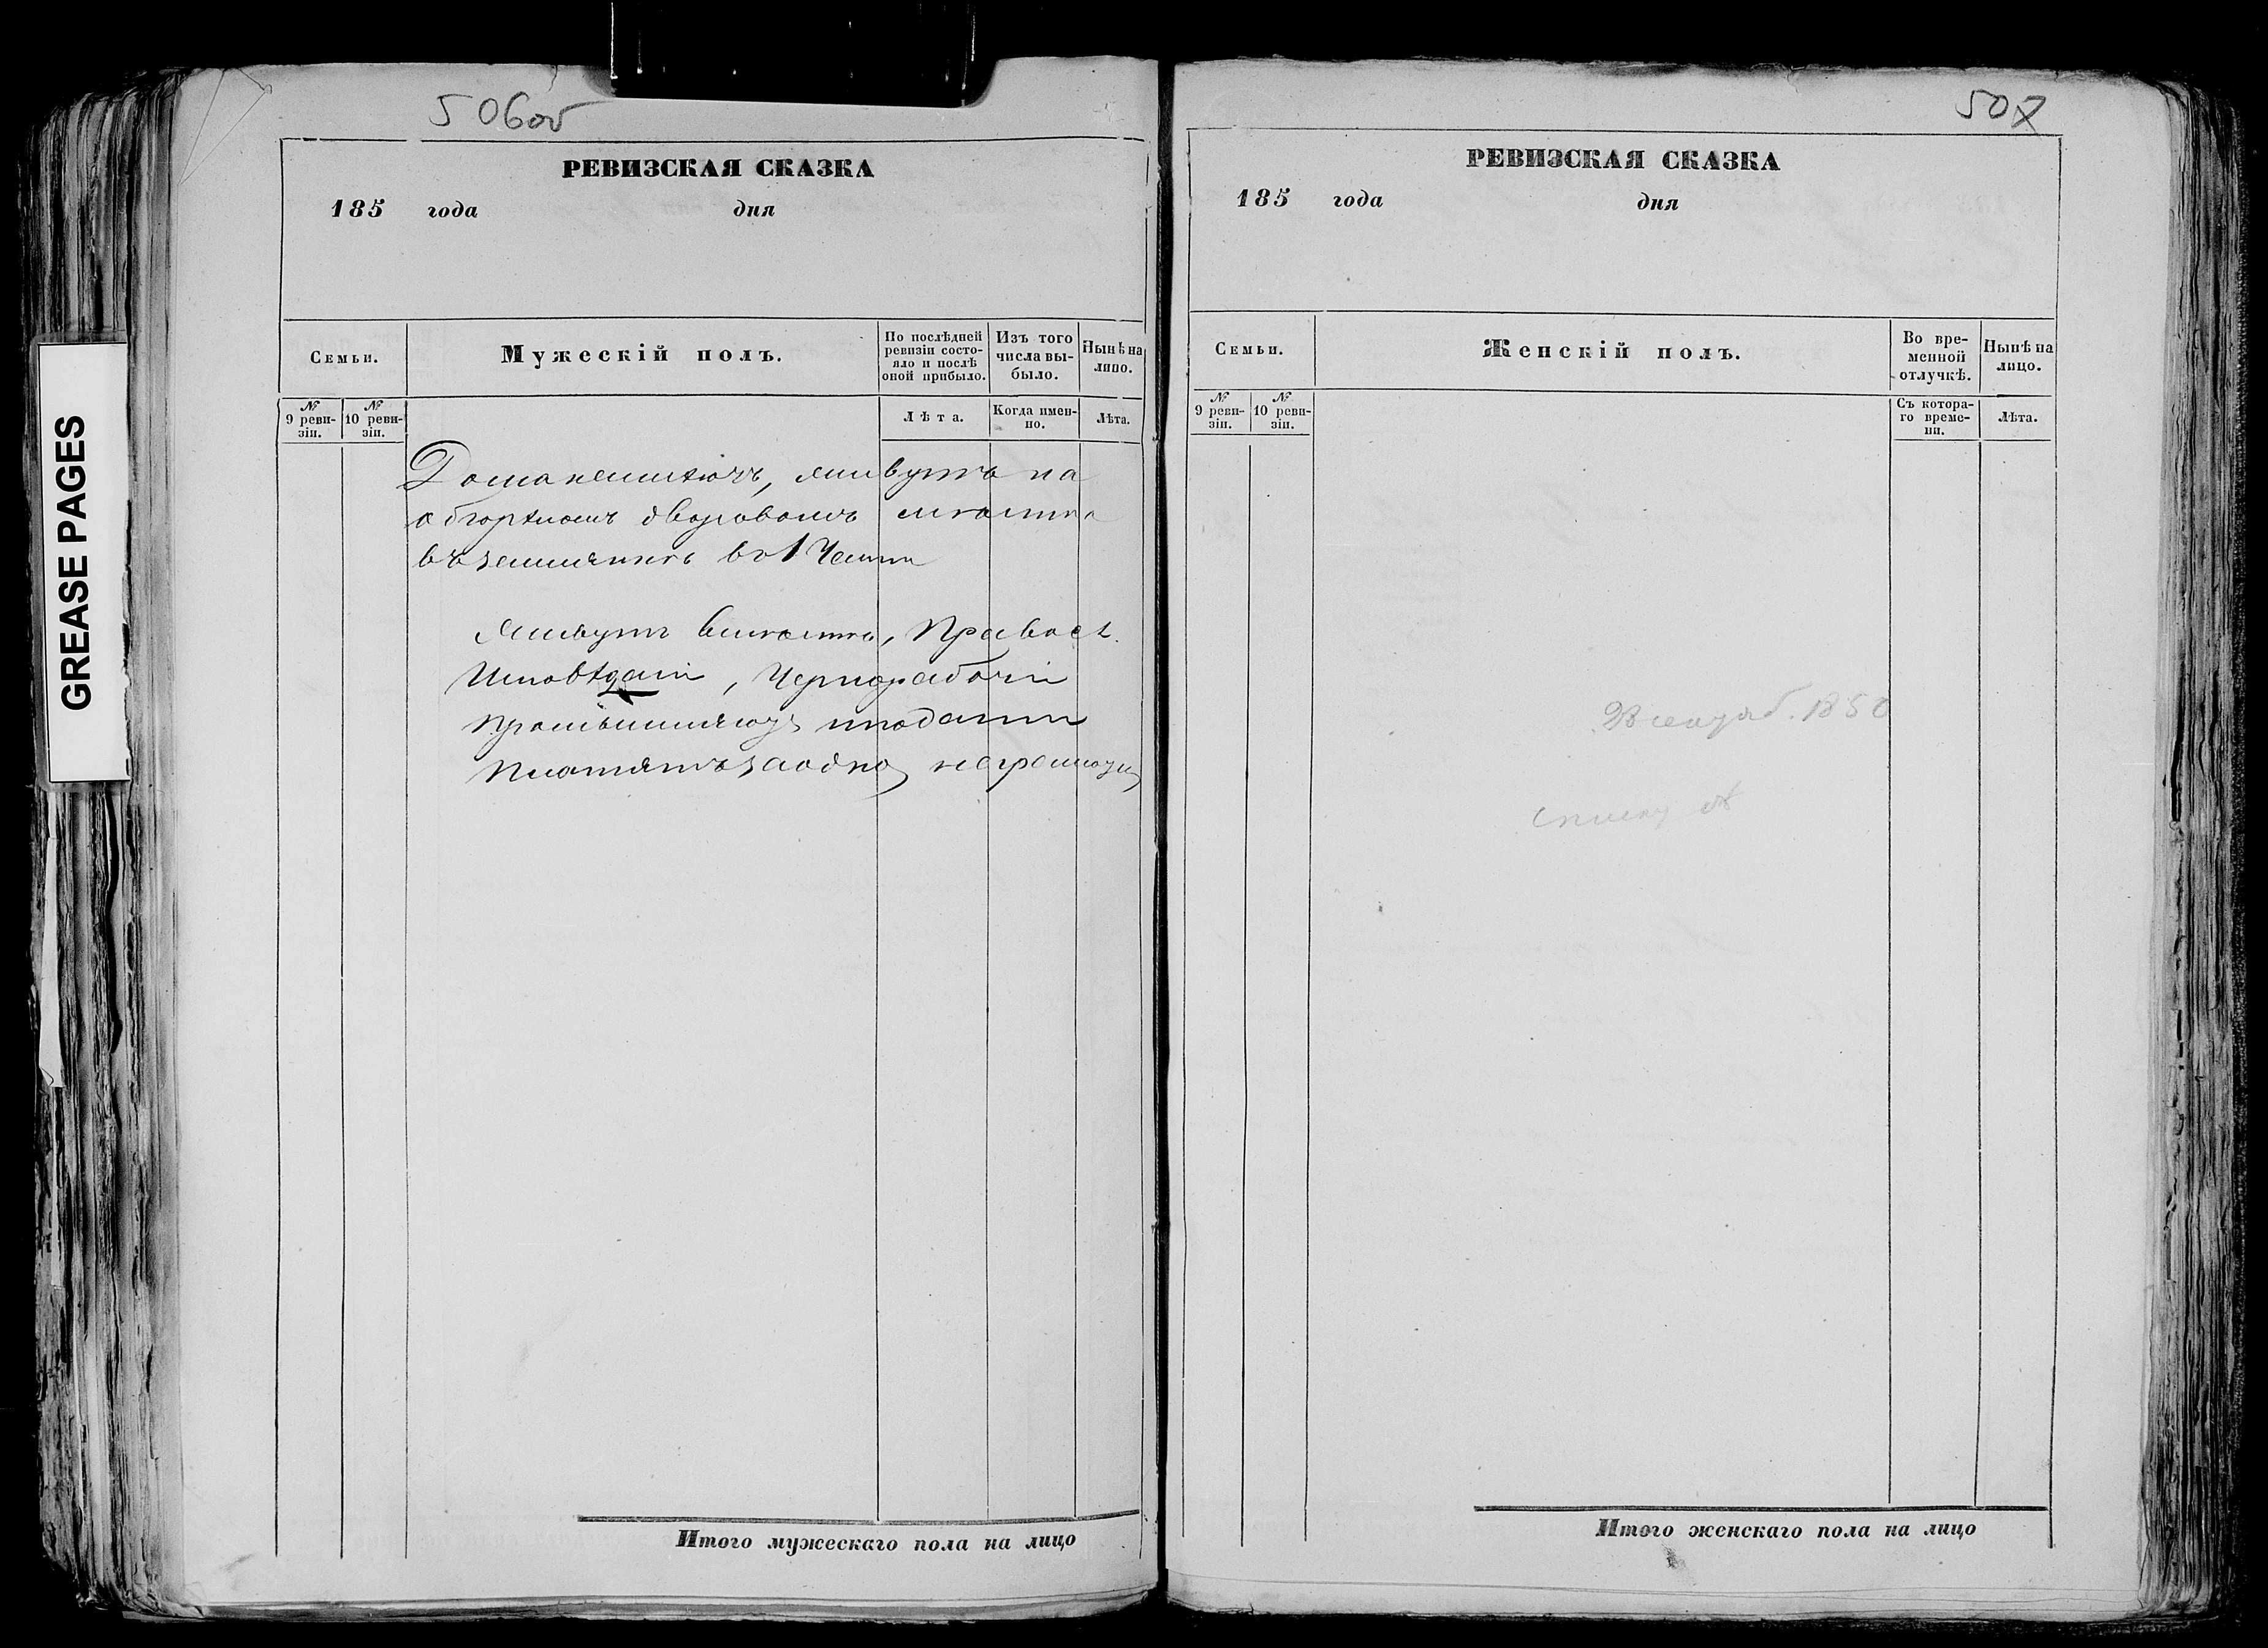 506об
РЕВИЗСКАЯ СКАЗКА
185 года дня
Семьи.
Мужескій полъ.
По послѣдней ревизіи состояло и послѣ оной прибыло.
Изъ того числа выбыло.
Нынѣ на лицо.
№ 9 ревизіи.
№ 10 ревизіи.
Лѣта.
Когда именно.
Лѣта.
Дома неимѣютъ, живутъ на
дворовомъ
въ 1 Части
Живутъ вмѣстѣ, Правосл.
Исповѣданія, Чернорабочіи
подати
Платятъ заодно, неграмотны
Итого мужескаго пола на лицо
507
РЕВИЗСКАЯ СКАЗКА
185 года дня
Семьи.
Женскій полъ.
Во временной отлучкѣ.
Нынѣ на лицо.
№ 9 ревизіи.
№ 10 ревизіи.
Съ котораго времени.
Лѣта.
Итого женскаго пола на лицо
GREASE PAGES